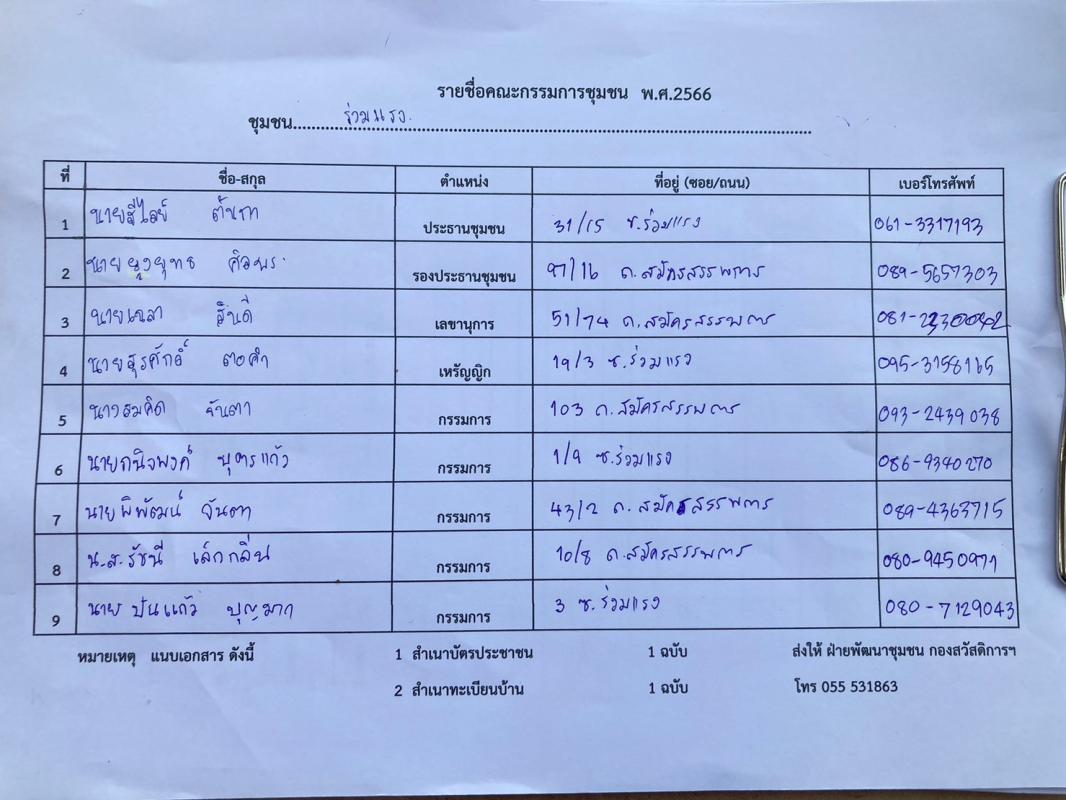 รายชื่อคณะกรรมการชุมชน พ.ศ.2566
ชุมชน ร่วมแรง
ที่ ชื่อ-สกุล ตำแหน่ง ที่อยู่ (ซอย/ถนน) เบอร์โทรศัพท์
1 นายศรีไลย์ ต้นตา ประธานชุมชน 31/15 ซ.ร่วมแรง 061-3317193
2 นายยงยุทธ ศิลพร รองประธานชุมชน 97/16 ถ.สมัครสรรพการ 089-5657303
3 นายเฉลา สินดี เลขานุการ 51/74 ถ.สมัครสรรพการ 081-
4 นายสุรศักดิ์ ตอคำ เหรัญญิก 19/3 ซ.ร่วมแรง 095-3158165
5 นางสมคิด จันตา กรรมการ 103 ถ.สมัครสรรพการ 093-2439038
6 นายกนิจพงศ์ บุตรแก้ว กรรมการ 1/9 ซ.ร่วมแรง 086-9340270
7 นายพิพัฒน์ จันตา กรรมการ 43/2 ถ.สมัครสรรพการ 089-4363715
8 น.ส.รัชนี เล็กกลิ่น กรรมการ 10/8 ถ.สมัครสรรพการ 080-9450971
9 นายปันแก้ว บุญมาก กรรมการ 3 ซ.ร่วมแรง 080-7129043
หมายเหตุ แนบเอกสาร ดังนี้ 1 สำเนาบัตรประชาชน 1 ฉบับ ส่งให้ ฝ่ายพัฒนาชุมชน กองสวัสดิการฯ
2 สำเนาทะเบียนบ้าน 1 ฉบับ โทร 055 531863